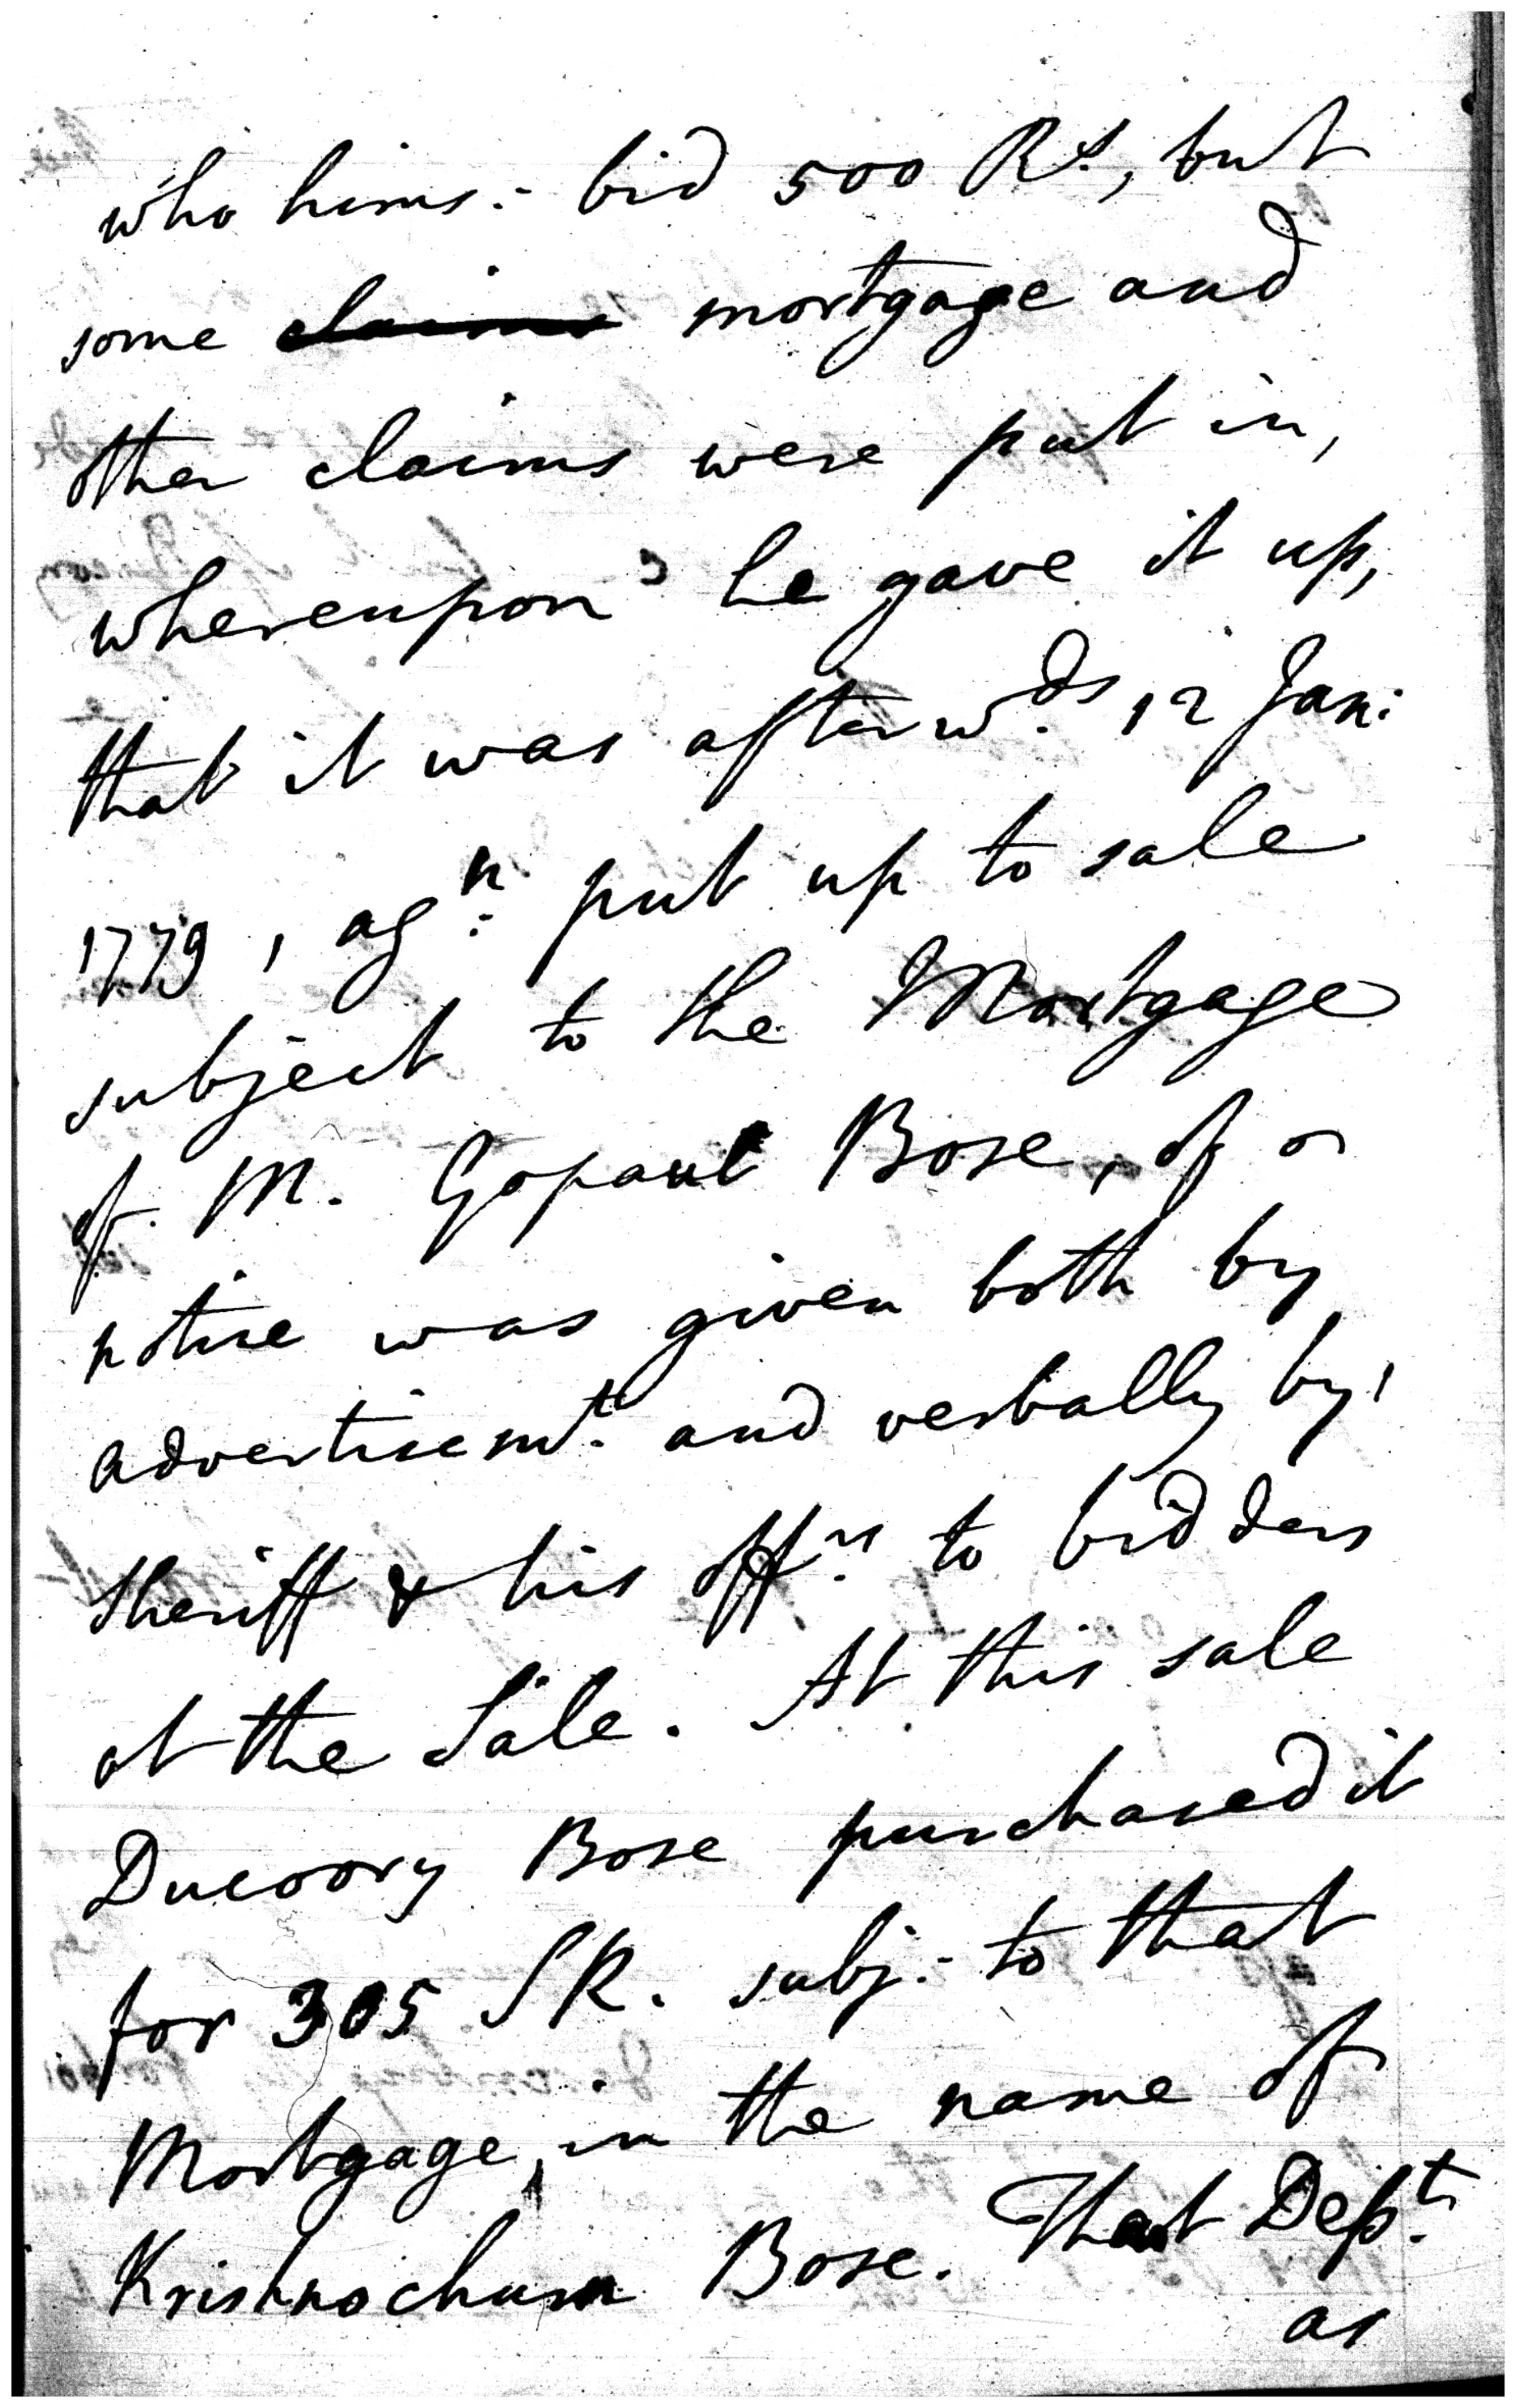 who hims:- bid 500 Rs., but
some claims mortgage and
other claims were put in,
whereupon he gave it up,
that it was afterwds. 12 Jan:
1779, agn: put up to sale
subject to the Mortgage
of M. Gopaul Bose, of
notice was given both by
advertisemt. and verbally by
Sheriff & his Offrs. to bidders
at the Sale. At this sale
Ducoory Bose purchased it
for 305 SR. subj:- to that
Mortgage, in the name of
Krishnochurn Bose. That Dept.
as